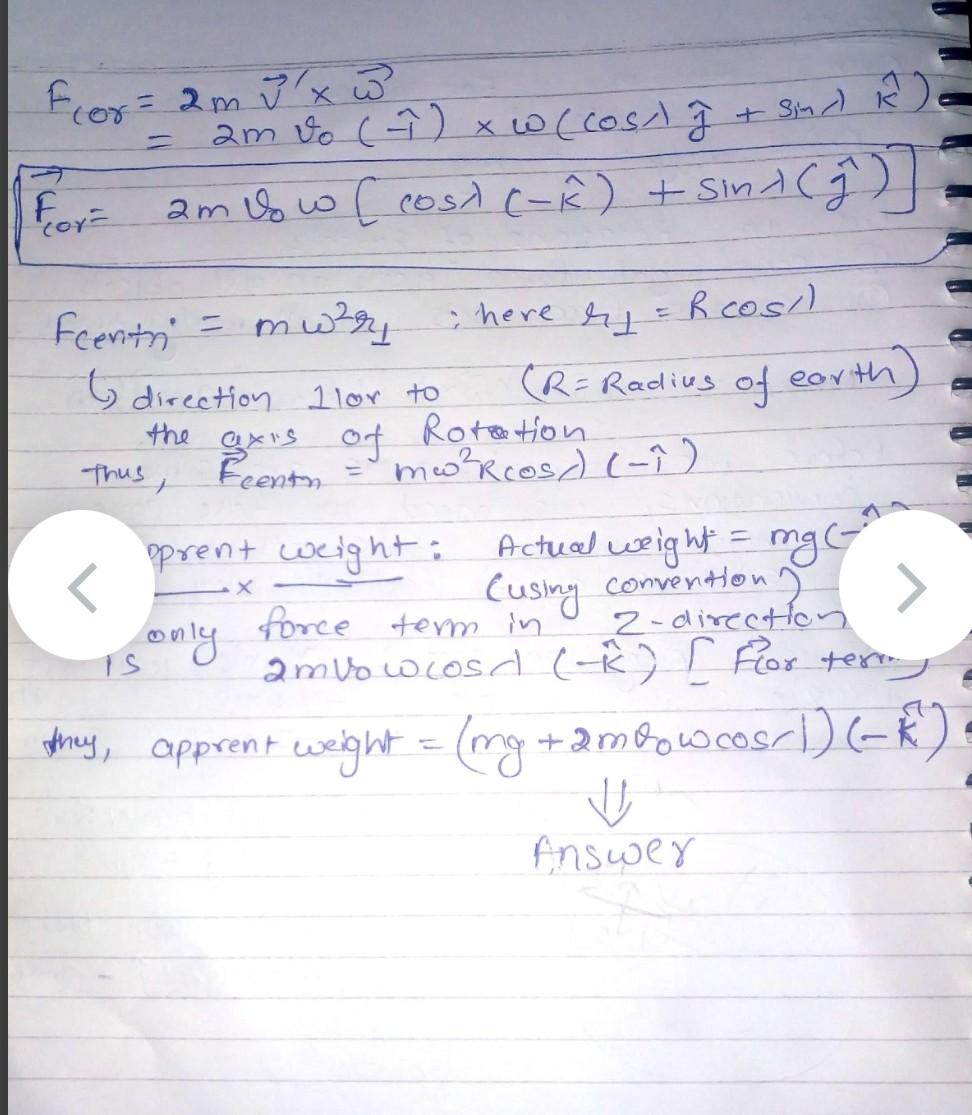 Fcor = 2m v⃗′ × ω⃗
= 2m v₀ (-î) × ω (cosλ ĵ + sinλ k̂)
F⃗cor = 2m v₀ ω [ cosλ (-k̂) + sinλ (ĵ) ]
Fcentri = mω²r⊥ ; here r⊥ = R cosλ
↳ direction 11or to (R = Radius of earth)
the axis of Rotation
Thus, F⃗centri = mω²Rcosλ (-î)
pprent weight : Actual weight = mg (-
(using convention)
only force term in Z-direction
is 2mv₀ωcosλ (-k̂) [ F⃗cor term]
thus, apprent weight = (mg + 2mv₀ωcosλ) (-k̂)
⇓
Answer